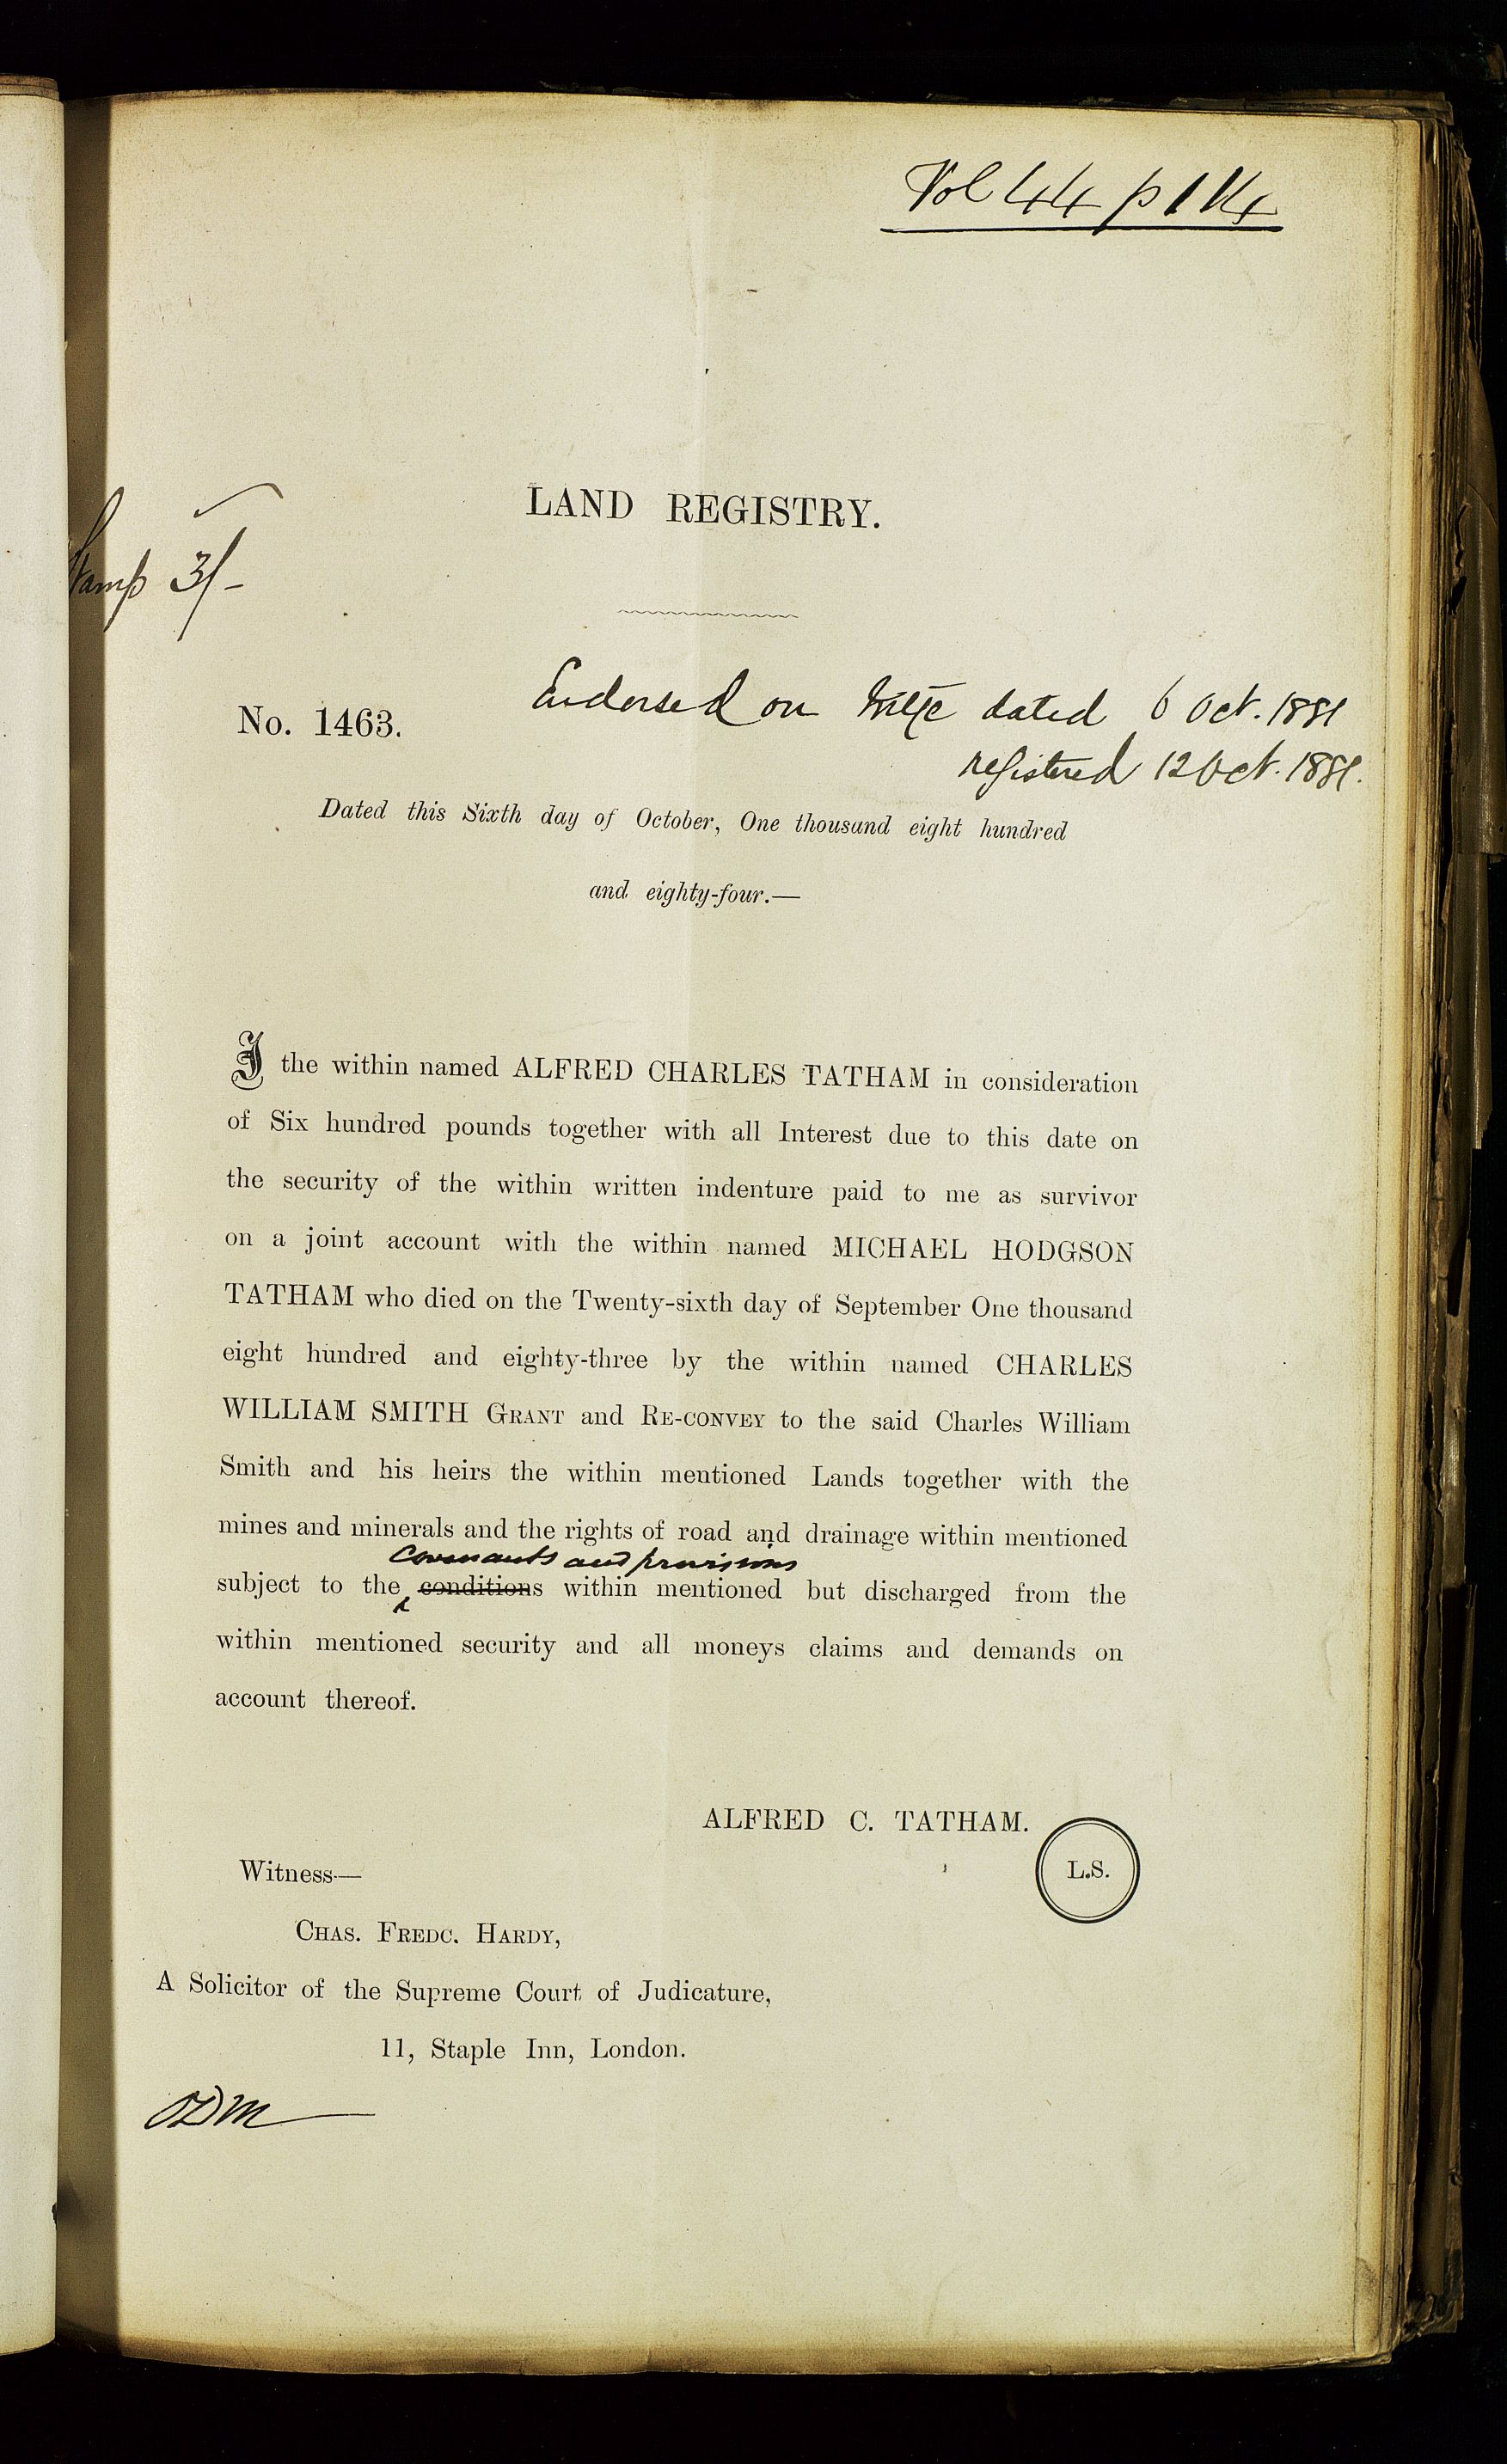 Vol 44 p 114
LAND REGISTRY.
Stamp 3/-
Endorsed on Mtge dated 6 Oct. 1881
No. 1463.
registered 12 Oct. 1881.
Dated this Sixth day of October, One thousand eight hundred
and eighty-four.—
I the within named ALFRED CHARLES TATHAM in consideration
of Six hundred pounds together with all Interest due to this date on
the security of the within written indenture paid to me as survivor
on a joint account with the within named MICHAEL HODGSON
TATHAM who died on the Twenty-sixth day of September One thousand
eight hundred and eighty-three by the within named CHARLES
WILLIAM SMITH GRANT and RE-CONVEY to the said Charles William
Smith and his heirs the within mentioned Lands together with the
mines and minerals and the rights of road and drainage within mentioned
covenants and provisions
subject to the conditions within mentioned but discharged from the
within mentioned security and all moneys claims and demands on
account thereof.
ALFRED C. TATHAM.
L.S.
Witness—
CHAS. FREDC. HARDY,
A Solicitor of the Supreme Court of Judicature,
11, Staple Inn, London.